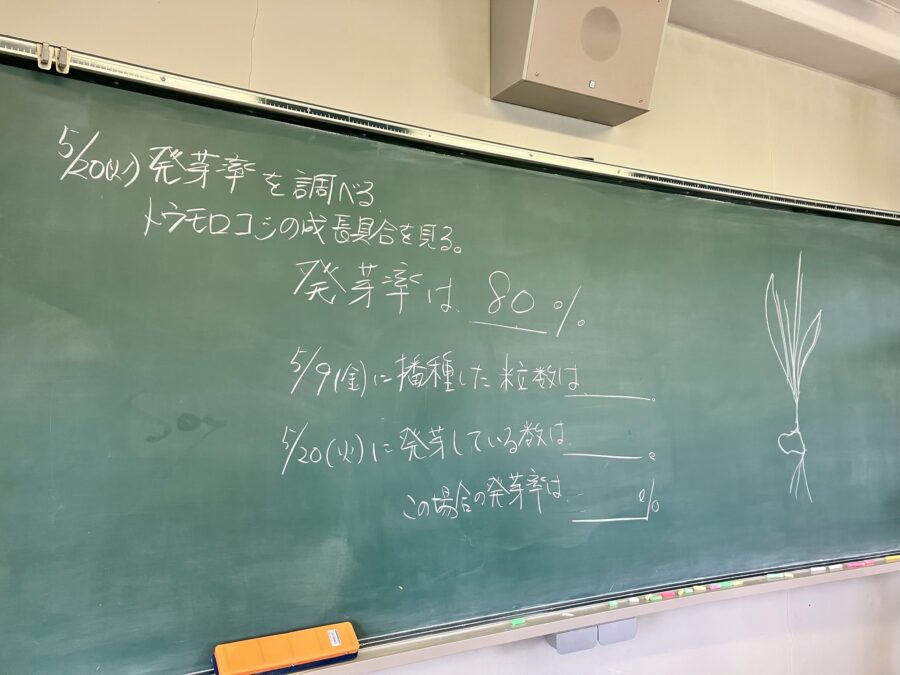 5/20(火) 発芽率を調べる
トウモロコシの成長具合を見る。
発芽率は 80 %
5/9(金)に播種した粒数は______。
5/20(火)に発芽している数は______。
この場合の発芽率は______%